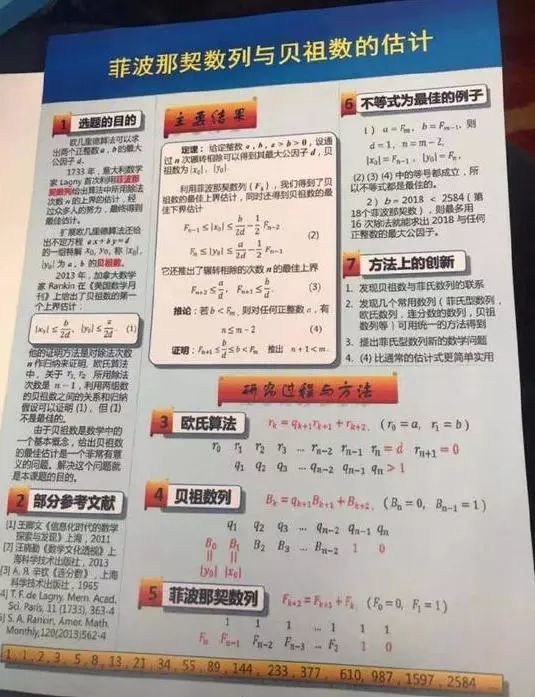 菲波那契数列与贝祖数的估计
1 选题的目的
欧几里德算法可以求
出两个正整数 a , b 的最大
公因子 d .
1733 年，意大利数学
家 Lagny 首次利用菲波那
契数列给出算法中所用除法
次数 n 的上界的估计，经
过众多人的努力，最终得到
最佳估计。
扩展欧几里德算法还给
出不定方程 ax + by = d
的一组特解 x₀, y₀, 称 |x₀|,
|y₀| 为 a , b 的贝祖数。
2013 年，加拿大数学
家 Rankin 在《美国数学月
刊》上给出了贝祖数的第一
个上界估计：
|x₀| ≤ b/2d, |y₀| ≤ a/2d. (1)
他的证明方法是对除法次数
n 作归纳来证明. 欧氏算法
中，关于 r₁, r₂ 所用除法
次数是 n − 1，利用两组数
的贝祖数之间的关系和归纳
假设可以证明 (1)，但 (1)
不是最佳的。
由于贝祖数是数学中的
一个基本概念，给出贝祖数
的最佳估计是一个非常有意
义的问题。解决这个问题就
是本课题的目的。
2 部分参考文献
[1] 王卿文《信息化时代的数学
探索与发现》上海，2011
[2] 汪晓勤《数学文化透视》上
海科学技术出版社，2013
[3] А. Я. 辛钦《连分数》，上海
科学技术出版社，1965
[4] T. F. de Lagny, Mem. Acad.
Sci. Paris, 11 (1733), 363-4
[5] S. A. Rankin, Amer. Math.
Monthly,120(2013)562-4
主要结果
定理：给定整数 a , b, a > b > 0，设通
过 n 次辗转相除可以得到其最大公因子 d，贝
祖数为 |x₀|, |y₀|.
利用菲波那契数列 {Fₖ}，我们得到了贝
祖数的最佳上界估计，同时还得到贝祖数的最
佳下界估计
Fₙ₋₁ ≤ |x₀| ≤ b/2d − 1/2 Fₙ₋₂
(2)
Fₙ ≤ |y₀| ≤ a/2d − 1/2 Fₙ₋₁
它还推出了辗转相除的次数 n 的最佳上界
Fₙ₊₂ ≤ a/d, Fₙ₊₁ ≤ b/d. (3)
推论：若 b < Fₘ，则对任何正整数 a，有
n ≤ m − 2 (4)
证明：Fₙ₊₁ ≤ b/d ≤ b < Fₘ 推出 n + 1 < m.
6 不等式为最佳的例子
1）a = Fₘ, b = Fₘ₋₁, 则
d = 1, n = m − 2,
|x₀| = Fₙ₋₁, |y₀| = Fₙ.
(2) (3) (4) 中的等号都成立，所
以不等式都是最佳的。
2）b = 2018 < 2584 ( 第
18个菲波那契数 )，则最多用
16 次除法就能求出 2018 与任何
正整数的最大公因子。
7 方法上的创新
1. 发现贝祖数与菲氏数列的联系
2. 发现几个常用数列（菲氏型数列，
欧氏数列，连分数的数列，贝祖
数列等）可用统一的方法得到
3. 提出菲氏型数列新的数学问题
4. (4) 比通常的估计式更简单实用
研究过程与方法
3 欧氏算法 rₖ = qₖ₊₁rₖ₊₁ + rₖ₊₂, (r₀ = a, r₁ = b)
r₀ r₁ r₂ r₃ ... rₙ₋₂ rₙ₋₁ rₙ = d rₙ₊₁ = 0
q₁ q₂ q₃ ... qₙ₋₂ qₙ₋₁ qₙ > 1
4 贝祖数列 Bₖ = qₖ₊₁Bₖ₊₁ + Bₖ₊₂, (Bₙ = 0, Bₙ₋₁ = 1)
q₁ q₂ q₃ ... qₙ₋₂ qₙ₋₁ qₙ
B₀ B₁ B₂ B₃ ... Bₙ₋₂ 1 0
|| ||
|y₀| |x₀|
5 菲波那契数列 Fₖ₊₂ = Fₖ₊₁ + Fₖ (F₀ = 0, F₁ = 1)
1 1 1 ... 1 1 1
Fₙ Fₙ₋₁ Fₙ₋₂ Fₙ₋₃ ... F₂ 1 0
1, 1, 2, 3, 5, 8, 13, 21, 34, 55, 89, 144, 233, 377, 610, 987, 1597, 2584